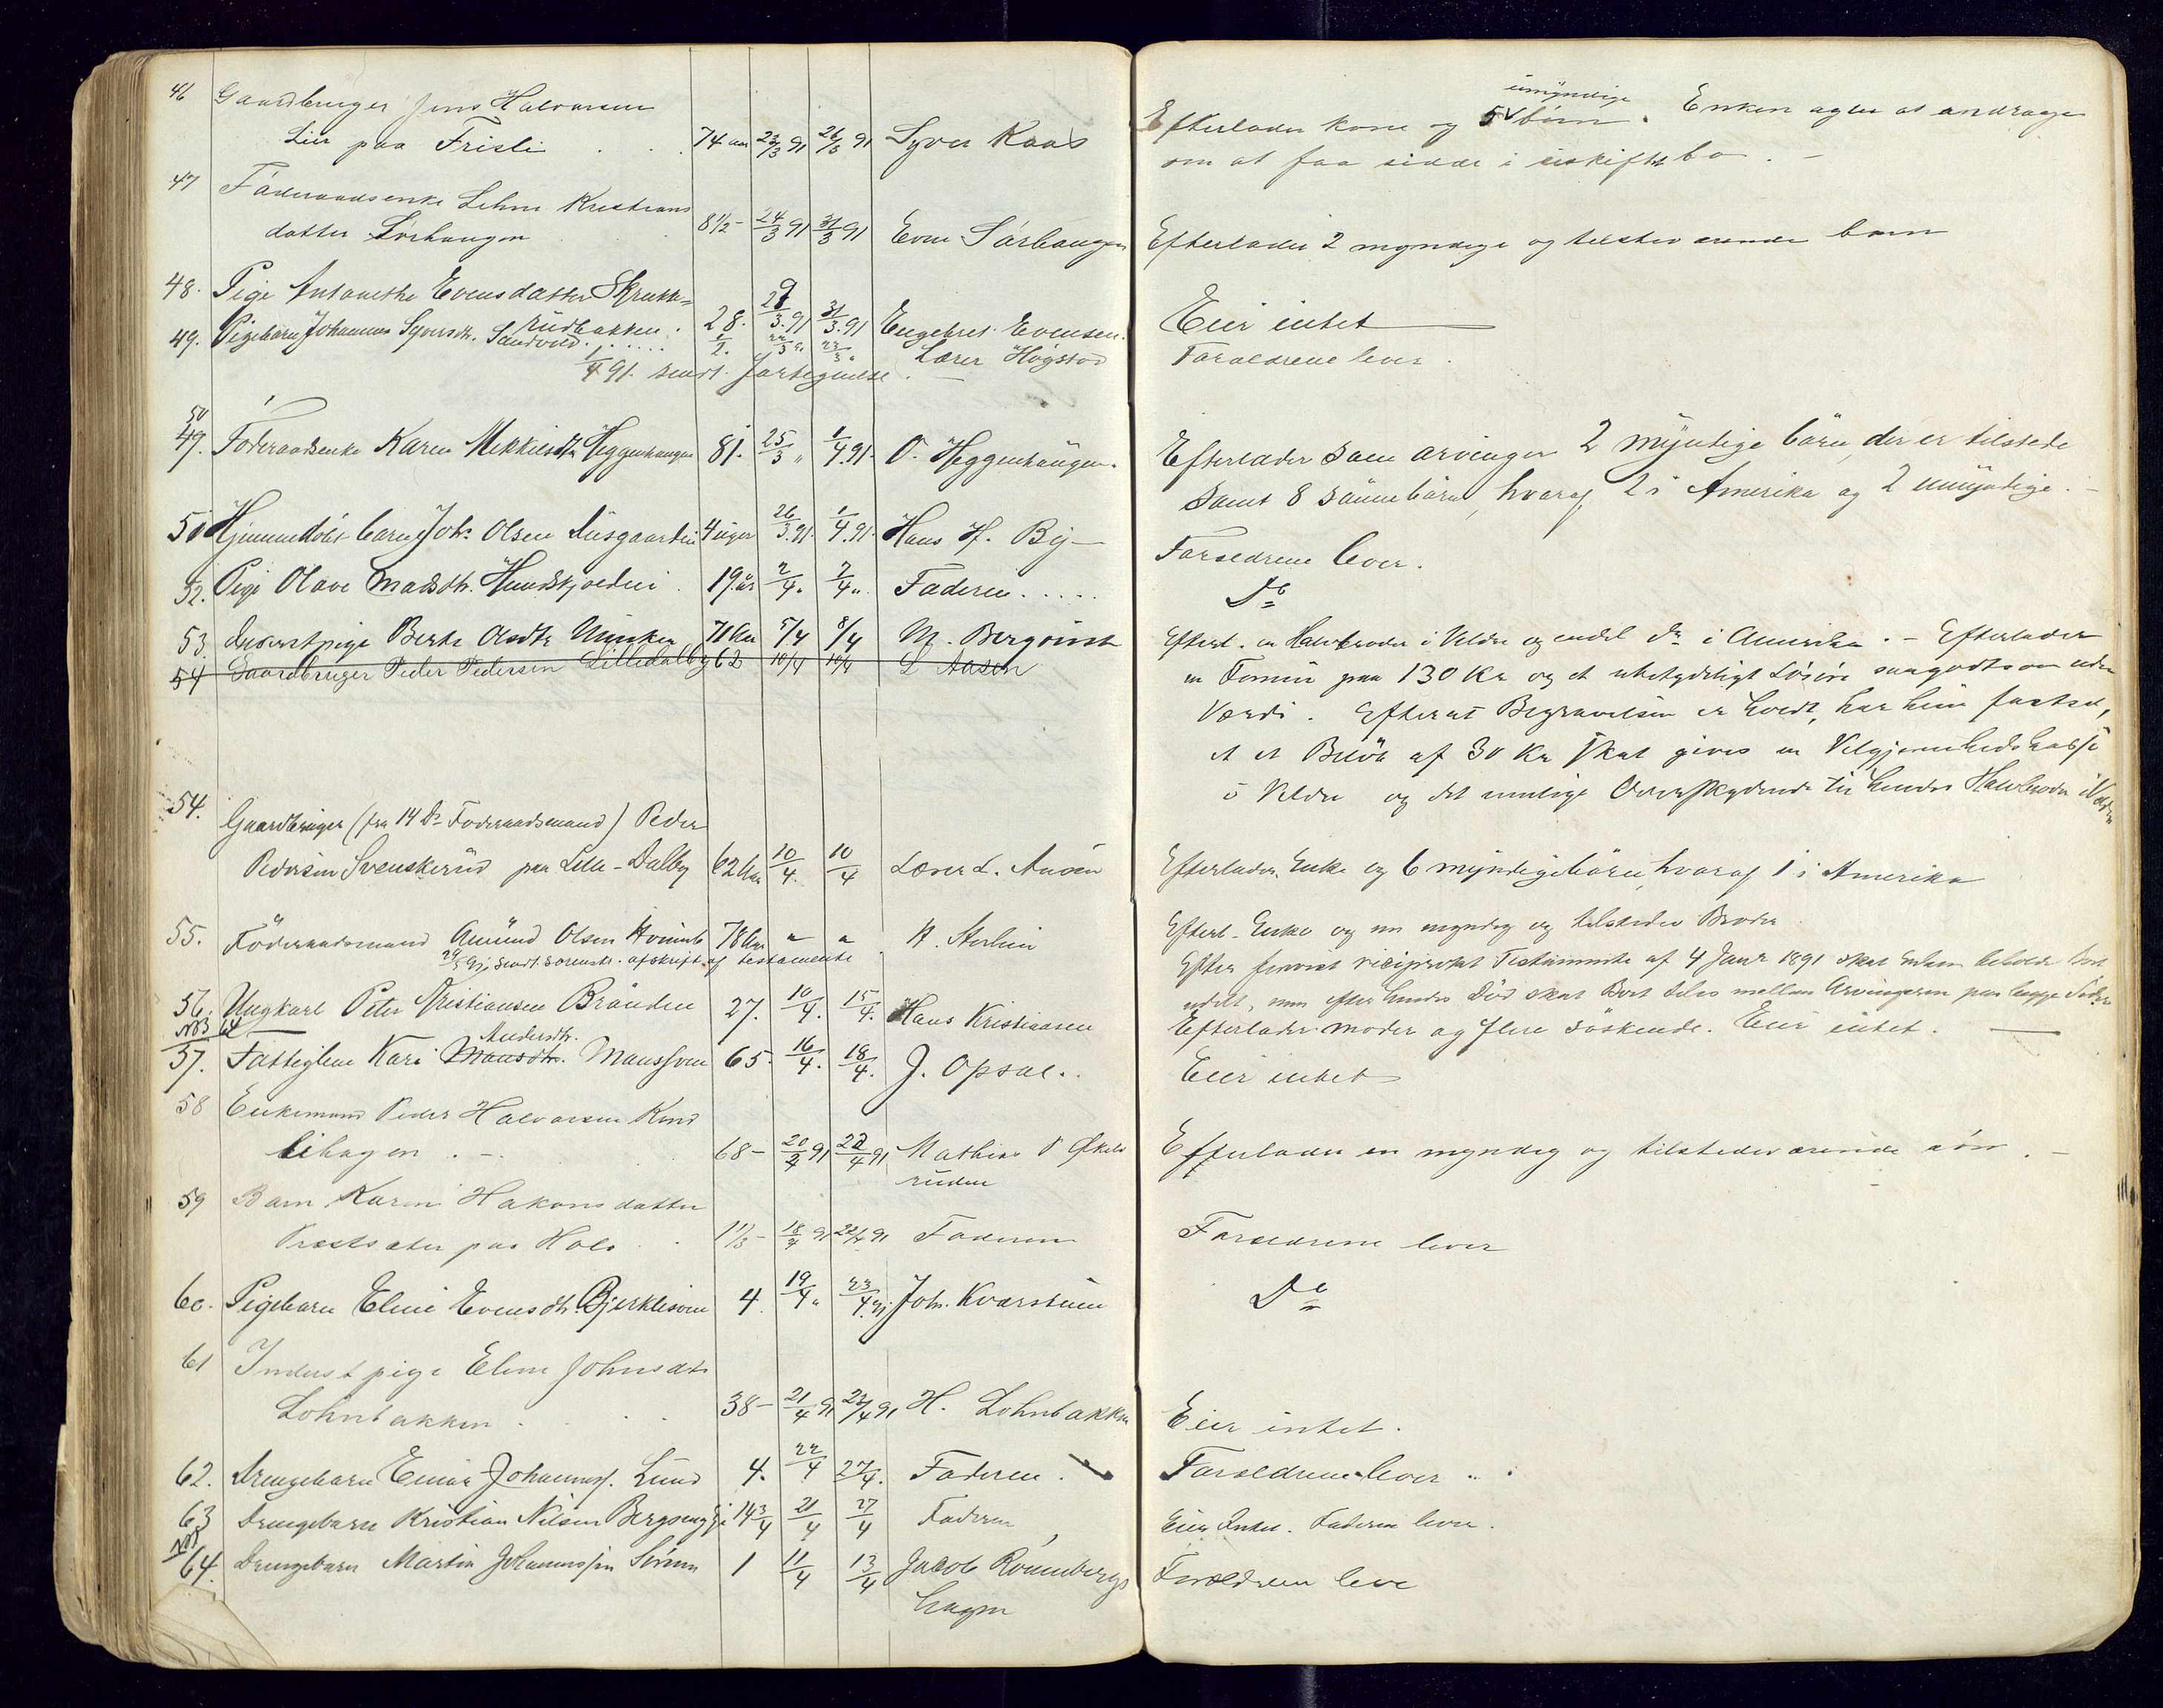 46 Gaardbruger Jens Halvorsen
Lier paa Frisli 74 aar 23/3 91 26/3 91 Syver Kaas
umyndige
Efterlader kone og 5 børn. Enken agter at andrage
om at faa sidde i uskiftet bo. —
47 Føderaadsenke Lehne Kristians
datter Sörhaugen 81½ - 24/3 91 31/3 91 Even Sörhaugen
Efterlader 2 myndige og tilstedeværende barn
48. Pige Antonethe Evensdatter Skrukke=
rudbakken. 28. 3.91 31/3.91 Engebret Evensen.
Eier intet
49. Pigebarn Johannes Syversdtr. Sandvold. ½. 22/3 " 23/3 " Lærer Högstad
Foraldrene lever.
1/4 91. sendt fortegnelse.
50
49. Föderaadsenke Karen Mikkelsdtr Heggenhaugen 81. 25/3 " 1/4.91. O. Heggenhaugen.
Efterlader som arvinger 2 myndige börn, der er tilstede
samt 8 sönnebörn, hvoraf 2 i Amerika og 2 umyndige. —
51 Hjemmedöbt barn Joh. Olsen 4 uger 26/3.91. 1/4.91. Hans H. By —
Foraldrene lever.
52. Pige Olave Madsdtr. Hundskjoldeie. 19 år 2/4. 7/4 " Faderen.....
Do
53. Inderstpige Berte Olsdtr 71 Aar 5/4 8/4 M. Bergqvist
54 Gaardbruger Peder Pedersen Lilledalby 62 10/4 10/4 L Aasen
Efterl. en Halvbroder i Veldre og endel Do i Amerika. — Efterlader
en Formue paa 130 Kr og et ubetydeligt Lösöre saagodtsom uden
Værdi. Efterat Begravelsen er holdt, har hun fastsat,
at et Belöb af 30 Kr skal gives en Velgjørenhedskasse
i Veldre og det mulige Overskydende til hendes Halvbroder i Veldre
54. Gaardbruger (fra 14 Do Föderaadsmand) Peder
Pedersen Svenskerud paa Lille-Dalby 62 Aar 10/4. 10/4 Lærer L. Aasen
Efterlader Enke og 6 myndige börn, hvoraf 1 i Amerika
55. Föderaadsmand Amund Olsen 78 Aar " "
Efterl. Enke og en myndig og tilstedev Broder.
sendt sorenskr. afskrift af testamente
Efter forevist reciprokt Testamente af 4 Januar 1891 skal Enken beholde Boet
udelt, men efter hendes Död skal Boet deles mellem Arvingerne paa begge Sider
56. Ungkarl Peter Kristiansen Bråuden 27. 10/4. 15/4. Hans Kristiansen
Efterlader moder og flere söskende. Eier intet. —
NB 64
Andersdtr.
57. Fattiglem Kari Mansdtr. Manssveen 65 - 16/4. 18/4. J. Opsal..
Eier intet
58 Enkemand Peder Halvorsen Kind
lihagen. — 68 - 20/4 91 22/4 91 Mathias P Økels
ruden
Efterlader en myndig og tilstedeværende sön. —
59 Barn Karen Hakonsdatter
Præstsæter paa Hols 1⅓ - 18/4 91 22/4 91 Faderen
Foraldrene lever
60. Pigebarn Eline Evensdtr. Bjerklisveen 4. 19/4 " 23/4.91. Joh. Kvarstuen
Do
61 Inderstpige Eline Johnsdtr
Lohnbakken. 38 - 21/4 91 23/4 91 H. Lohnbakken
Eier intet.
62. Drengebarn Einar Johannes. Lund 4. 22/4 27/4. Faderen.
Foraldrene lever
63 Drengebarn Kristian Nilsen Bergsengeie 14¾ 21/4 27/4 Faderen
Eier Intet. Faderen lever.
NB
64. Drengebarn Martin Johannessen Sörum 1 11/4 13/4 Jacob Rönnbergs
hagen
Foraldrene leve